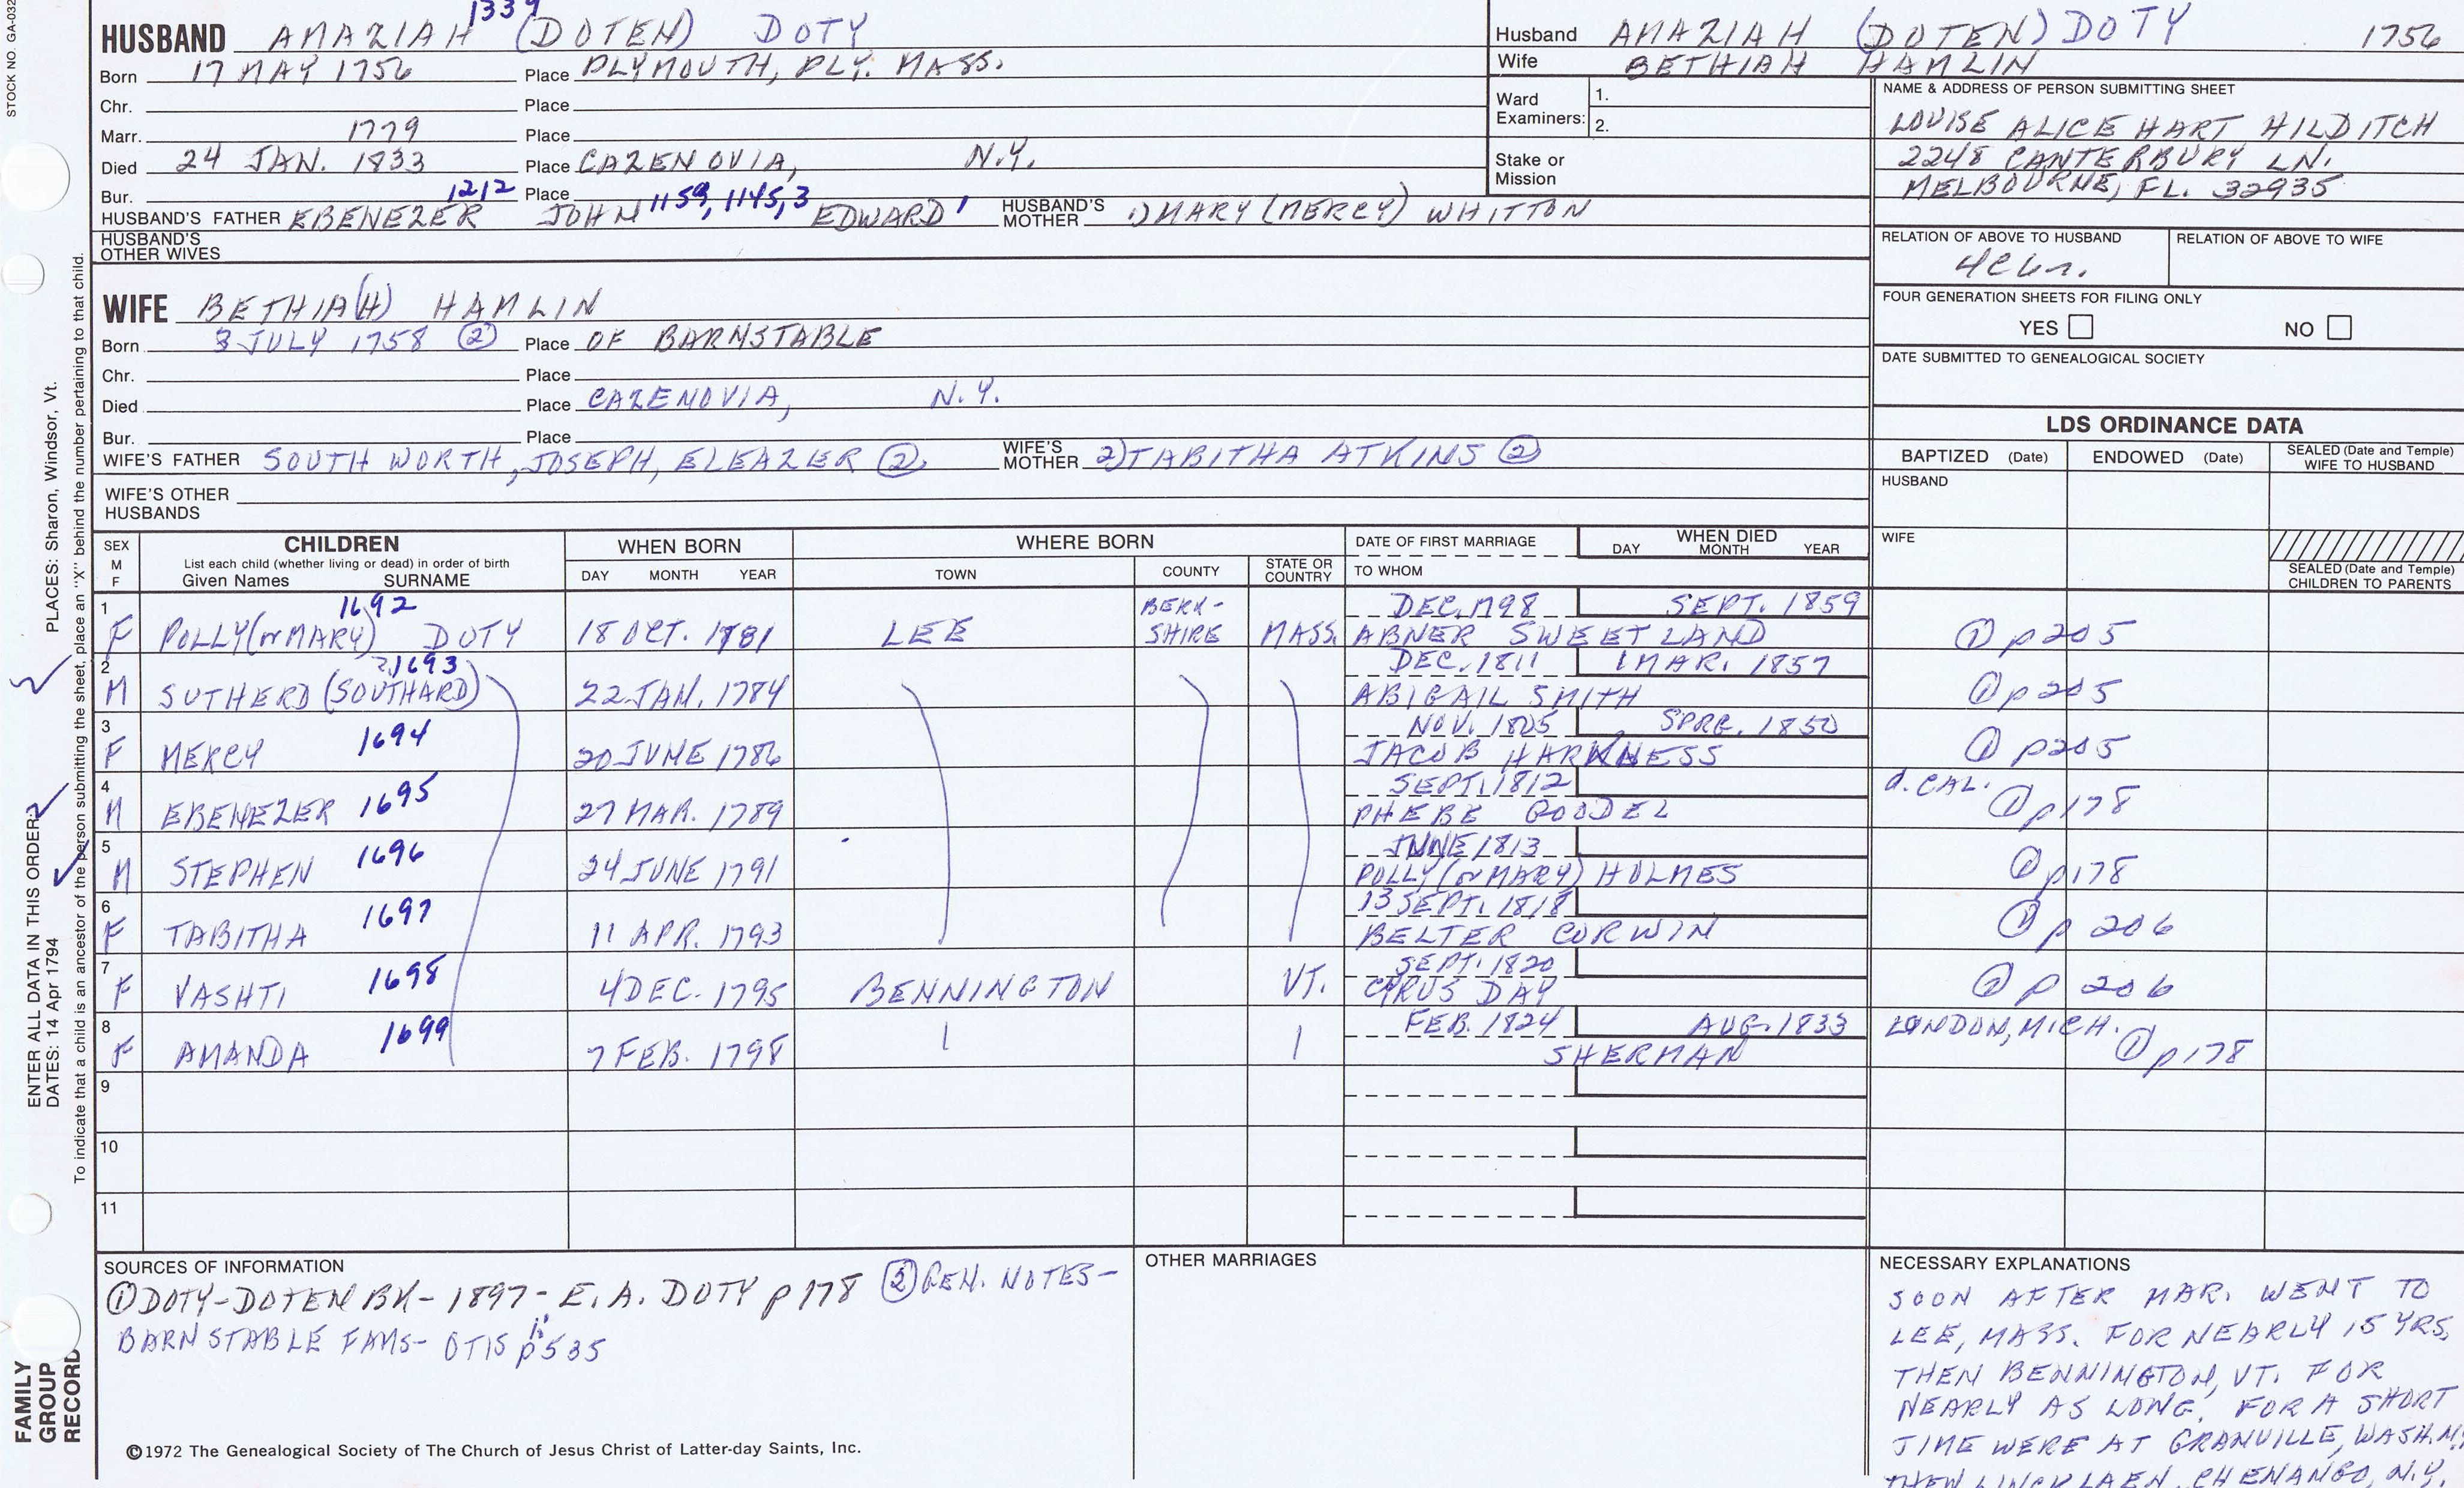 STOCK NO. GA-032
1339
HUSBAND AMAZIAH (DOTEN) DOTY
Born 17 MAY 1756 Place PLYMOUTH, PLY. MASS.
Chr. Place
Marr. 1779 Place
Died 24 JAN. 1833 Place CAZENOVIA, N.Y.
Bur. Place
1212 1159, 1145, 3 1
HUSBAND'S FATHER EBENEZER JOHN EDWARD HUSBAND'S MOTHER 1) MARY (MERCY) WHITTON
HUSBAND'S OTHER WIVES
WIFE BETHIA(H) HAMLIN
Born 3 JULY 1758 ② Place OF BARNSTABLE
Chr. Place
Died Place CAZENOVIA, N.Y.
Bur. Place
WIFE'S FATHER SOUTHWORTH, JOSEPH, ELEAZER ② WIFE'S MOTHER 2) TABITHA ATKINS ②
WIFE'S OTHER HUSBANDS
Husband AMAZIAH (DOTEN) DOTY 1756
Wife BETHIAH HAMLIN
Ward Examiners: 1.
2.
Stake or Mission
NAME & ADDRESS OF PERSON SUBMITTING SHEET
LOUISE ALICE HART HILDITCH
2248 CANTERBURY LN.
MELBOURNE, FL. 32935
RELATION OF ABOVE TO HUSBAND RELATION OF ABOVE TO WIFE
FOUR GENERATION SHEETS FOR FILING ONLY
YES NO
DATE SUBMITTED TO GENEALOGICAL SOCIETY
LDS ORDINANCE DATA
BAPTIZED (Date) ENDOWED (Date) SEALED (Date and Temple) WIFE TO HUSBAND
HUSBAND
WIFE
SEALED (Date and Temple) CHILDREN TO PARENTS
SEX M F
CHILDREN
List each child (whether living or dead) in order of birth
Given Names SURNAME
WHEN BORN
DAY MONTH YEAR
WHERE BORN
TOWN COUNTY STATE OR COUNTRY
DATE OF FIRST MARRIAGE
TO WHOM
WHEN DIED
DAY MONTH YEAR
1 1692 BERK- DEC. 1798 SEPT. 1859
F POLLY (or MARY) DOTY 18 OCT. 1781 LEE SHIRE MASS. ABNER SWEETLAND ① p 205
2 1693 DEC. 1811 1 MAR. 1857
M SUTHERD (SOUTHARD) 22 JAN. 1784 ABIGAIL SMITH ① p 205
3 1694 NOV. 1805 SPRG. 1850
F MERCY 20 JUNE 1786 JACOB HARKNESS ① p 205
4 1695 SEPT. 1812 d. CAL.
M EBENEZER 27 MAR. 1789 PHEBE GOODEL ① p 178
5 1696 JUNE 1813
M STEPHEN 24 JUNE 1791 POLLY (or MARY) HOLMES ① p 178
6 1697 13 SEPT. 1818
F TABITHA 11 APR. 1793 BELTER CORWIN ① p 206
7 1698 SEPT. 1820
F VASHTI 4 DEC. 1795 BENNINGTON VT. CYRUS DAY ① p 206
8 1699 FEB. 1824 AUG. 1833 LONDON, MICH.
F AMANDA 7 FEB. 1798 SHERMAN ① p 178
9
10
11
SOURCES OF INFORMATION
① DOTY-DOTEN BK - 1897 - E. A. DOTY p 178 ② GEN. NOTES -
BARNSTABLE FAMS - OTIS p 535
©1972 The Genealogical Society of The Church of Jesus Christ of Latter-day Saints, Inc.
OTHER MARRIAGES
NECESSARY EXPLANATIONS
SOON AFTER MAR. WENT TO
LEE, MASS. FOR NEARLY 15 YRS,
THEN BENNINGTON, VT. FOR
NEARLY AS LONG. FOR A SHORT
TIME WERE AT GRANVILLE, WASH. N.Y.
THEN LINCKLAEN, CHENANGO, N.Y.
PLACES: Sharon, Windsor, Vt.
ENTER ALL DATA IN THIS ORDER:
DATES: 14 Apr 1794
To indicate that a child is an ancestor of the person submitting the sheet, place an "X" behind the number pertaining to that child.
FAMILY
GROUP
RECORD